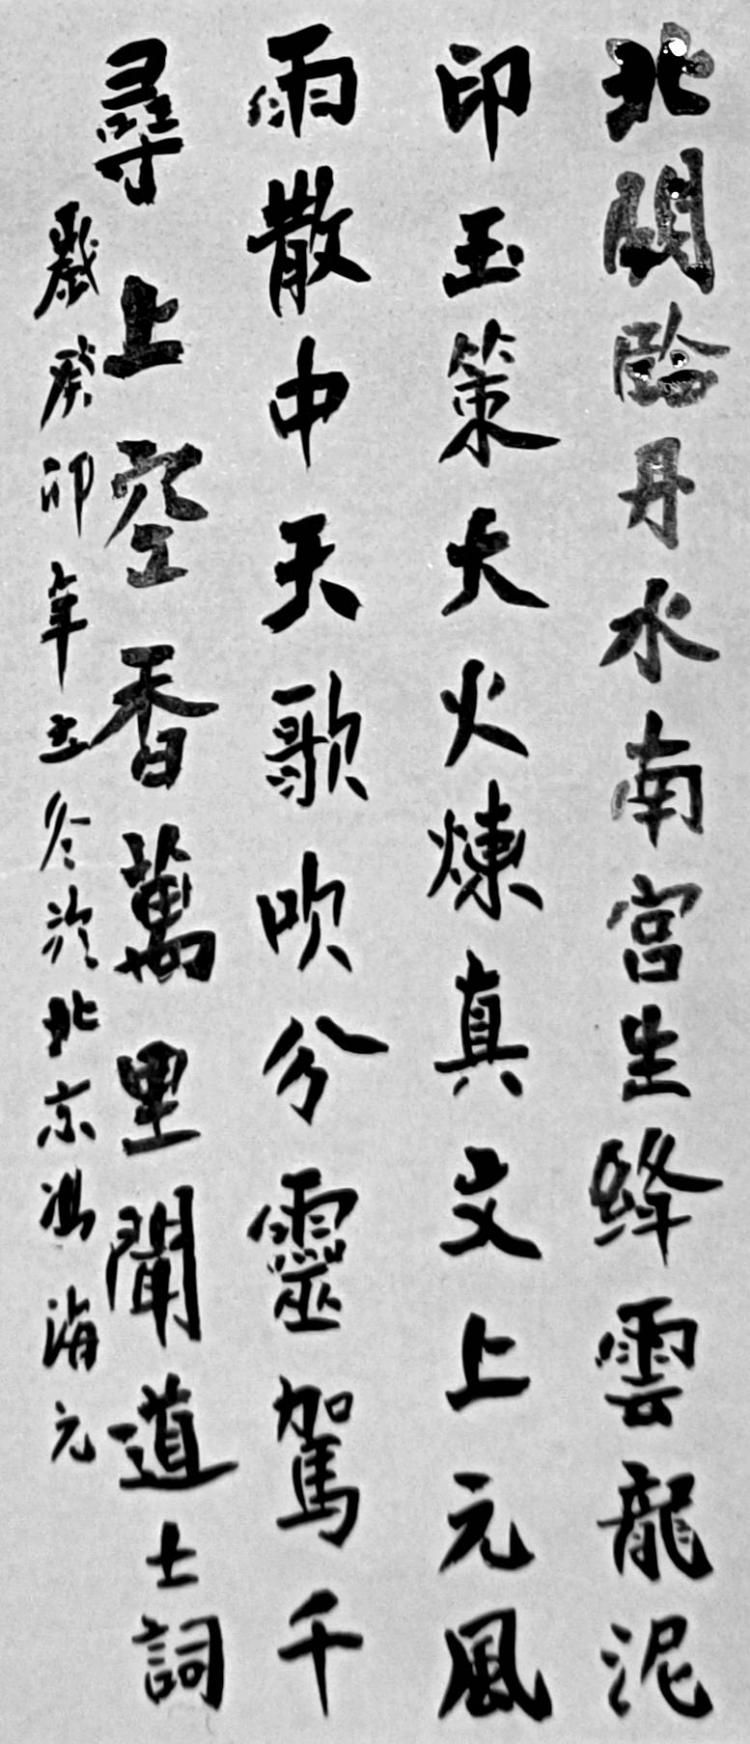 北闕臨丹水南宮生絳雲龍泥
印玉策大火煉真文上元風
雨散中天歌吹分靈駕千
尋上空香萬里聞道士詞
歲癸卯年立冬於北京馮海元